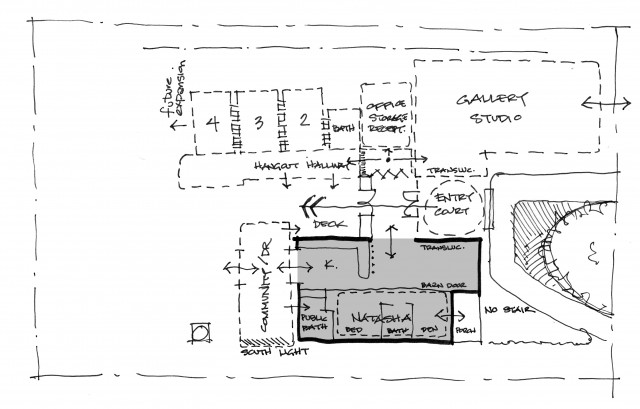 future
expansion
4
3
2
BATH
OFFICE
STORAGE
RECEPT.
GALLERY
STUDIO
HANGOUT HALLWAY
TRANSLUC.
ENTRY
COURT
DECK
TRANSLUC.
COMMUNITY/DR
K.
BARN DOOR
PUBLIC
BATH
NATASHA
BED
BATH
DEN
PORCH
NO STAIR
SOUTH LIGHT